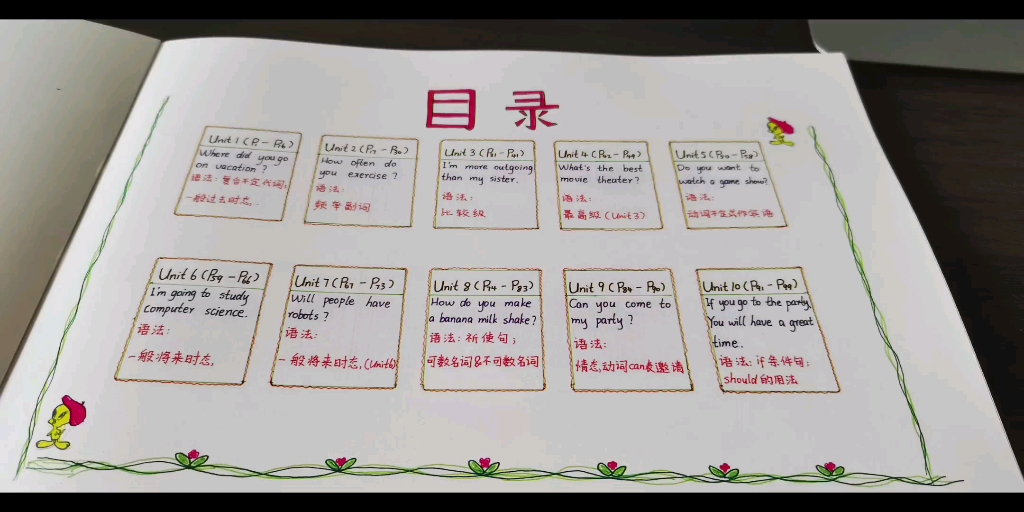 目录
Unit 1 (P1-P6)
Where did you go
on vacation?
语法: 复合不定代词;
一般过去时态.
Unit 2 (P7-P30)
How often do
you exercise?
语法:
频率副词
Unit 3 (P31-P41)
I'm more outgoing
than my sister.
语法:
比较级
Unit 4 (P42-P49)
What's the best
movie theater?
语法:
最高级 (Unit 3)
Unit 5 (P50-P58)
Do you want to
watch a game show?
语法:
动词不定式作宾语
Unit 6 (P59-P66)
I'm going to study
computer science.
语法:
一般将来时态,
Unit 7 (P67-P73)
Will people have
robots?
语法:
一般将来时态, (Unit6)
Unit 8 (P74-P83)
How do you make
a banana milk shake?
语法: 祈使句;
可数名词&不可数名词
Unit 9 (P84-P90)
Can you come to
my party?
语法:
情态动词can表邀请
Unit 10 (P91-P99)
If you go to the party,
You will have a great
time.
语法: if 条件句;
should 的用法